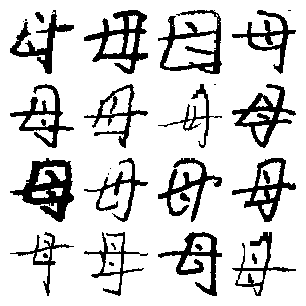 母母母母
母母母母
母母母母
母母母母